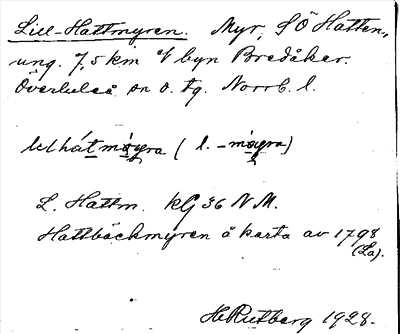 Lill-Hattmyren. Myr, SÖ Hatten,
ung. 7,5 km v byn Bredåker.
Överluleå sn o. tg. Norrb. l.
L. Hattm. kG 36 N M.
Hattbäckmyren å karta av 1798
(La).
H. Rutberg 1928.